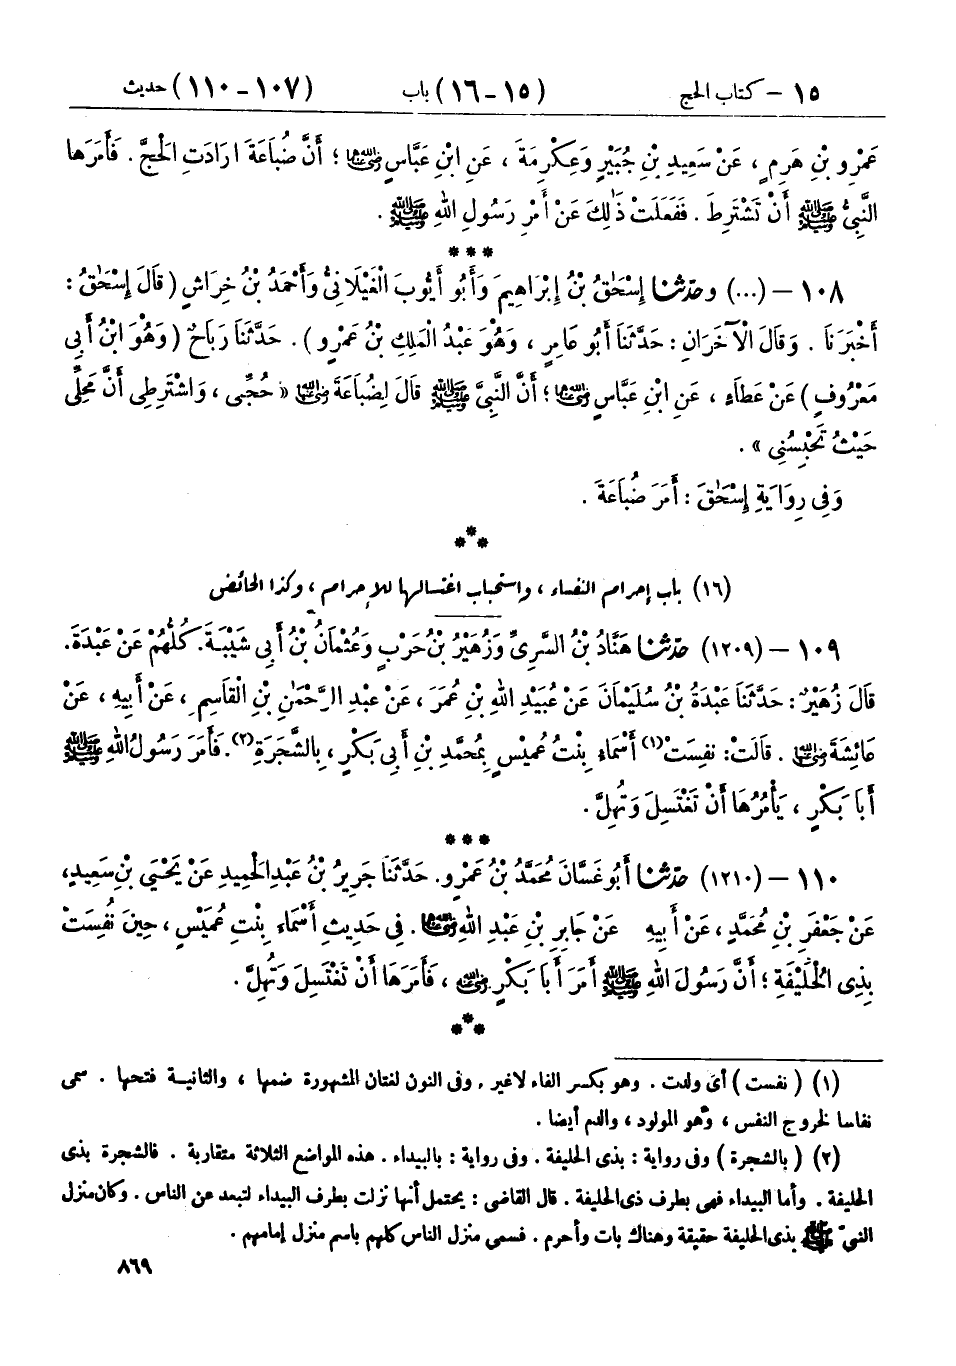 ١٥ – كتاب الحج (١٥-١٦) باب (١٠٧-١١٠) حديث
عَمْرِو بْنِ هَرِمٍ ، عَنْ سَعِيدِ بْنِ جُبَيْرٍ وَعِكْرِمَةَ ، عَنِ ابْنِ عَبَّاسٍ رضي الله عنهما ؛ أَنَّ ضُبَاعَةَ ارَادَتِ الْحَجَّ . فَأَمَرَهَا
النَّبِيُّ ﷺ أَنْ تَشْتَرِطَ . فَفَعَلَتْ ذَٰلِكَ عَنْ أَمْرِ رَسُولِ اللهِ ﷺ .
***
١٠٨ – (...) وحَدَّثَنَا إِسْحَٰقُ بْنُ إِبْرَاهِيمَ وَأَبُو أَيُّوبَ الْغَيْلَانِيُّ وَأَحْمَدُ بْنُ خِرَاشٍ ( قَالَ إِسْحَٰقُ :
أَخْبَرَنَا . وَقَالَ الْآخَرَانِ : حَدَّثَنَا أَبُو عَامِرٍ ، وَهُوَ عَبْدُ الْمَلِكِ بْنُ عَمْرٍو ) . حَدَّثَنَا رَبَاحٌ ( وَهُوَ ابْنُ أَبِي
مَعْرُوفٍ ) عَنْ عَطَاءٍ ، عَنِ ابْنِ عَبَّاسٍ رضي الله عنهما ؛ أَنَّ النَّبِيَّ ﷺ قَالَ لِضُبَاعَةَ رضي الله عنها « حُجِّى ، وَاشْتَرِطِى أَنَّ مَحِلِّى
حَيْثُ تَحْبِسُنِى » .
وَفِى رِوَايَةِ إِسْحَٰقَ : أَمَرَ ضُبَاعَةَ .
***
(١٦) باب إحرام النفساء ، واستحباب اغتسالها للإحرام ، وكذا الحائض
١٠٩ – (١٢٠٩) حَدَّثَنَا هَنَّادُ بْنُ السَّرِىِّ وَزُهَيْرُ بْنُ حَرْبٍ وَعُثْمَانُ بْنُ أَبِي شَيْبَةَ. كُلُّهُمْ عَنْ عَبْدَةَ.
قَالَ زُهَيْرٌ : حَدَّثَنَا عَبْدَةُ بْنُ سُلَيْمَانَ عَنْ عُبَيْدِ اللهِ بْنِ عُمَرَ ، عَنْ عَبْدِ الرَّحْمَٰنِ بْنِ الْقَاسِمِ ، عَنْ أَبِيهِ ، عَنْ
عَائِشَةَ رضي الله عنها . قَالَتْ : نُفِسَتْ (١) أَسْمَاءُ بِنْتُ عُمَيْسٍ بِمُحَمَّدِ بْنِ أَبِي بَكْرٍ ، بِالشَّجَرَةِ (٢). فَأَمَرَ رَسُولُ اللهِ ﷺ
أَبَا بَكْرٍ ، يَأْمُرُهَا أَنْ تَغْتَسِلَ وَتُهِلَّ .
***
١١٠ – (١٢١٠) حَدَّثَنَا أَبُو غَسَّانَ مُحَمَّدُ بْنُ عَمْرٍو. حَدَّثَنَا جَرِيرُ بْنُ عَبْدِ الْحَمِيدِ عَنْ يَحْيَى بْنِ سَعِيدٍ،
عَنْ جَعْفَرِ بْنِ مُحَمَّدٍ ، عَنْ أَبِيهِ عَنْ جَابِرِ بْنِ عَبْدِ اللهِ رضي الله عنهما . فِى حَدِيثِ أَسْمَاءَ بِنْتِ عُمَيْسٍ ، حِينَ نُفِسَتْ
بِذِى الْحُلَيْفَةِ ؛ أَنَّ رَسُولَ اللهِ ﷺ أَمَرَ أَبَا بَكْرٍ رضي الله عنه ، فَأَمَرَهَا أَنْ تَغْتَسِلَ وَتُهِلَّ .
***
(١) ( نفست ) أى ولدت . وهو بكسر الفاء لاغير . وفى النون لغتان المشهورة ضمها ، والثانية فتحها . سمى
نفاسا لخروج النفس ، وهو المولود ، والدم أيضا .
(٢) ( بالشجرة ) وفى رواية : بذى الحليفة . وفى رواية : بالبيداء . هذه المواضع الثلاثة متقاربة . فالشجرة بذى
الحليفة . وأما البيداء فهى بطرف ذى الحليفة . قال القاضى : يحتمل أنها نزلت بطرف البيداء لتبعد عن الناس . وكان منزل
النبىّ ﷺ بذى الحليفة حقيقة وهناك بات وأحرم . فسمى منزل الناس كلهم باسم منزل إمامهم .
٨٦٩